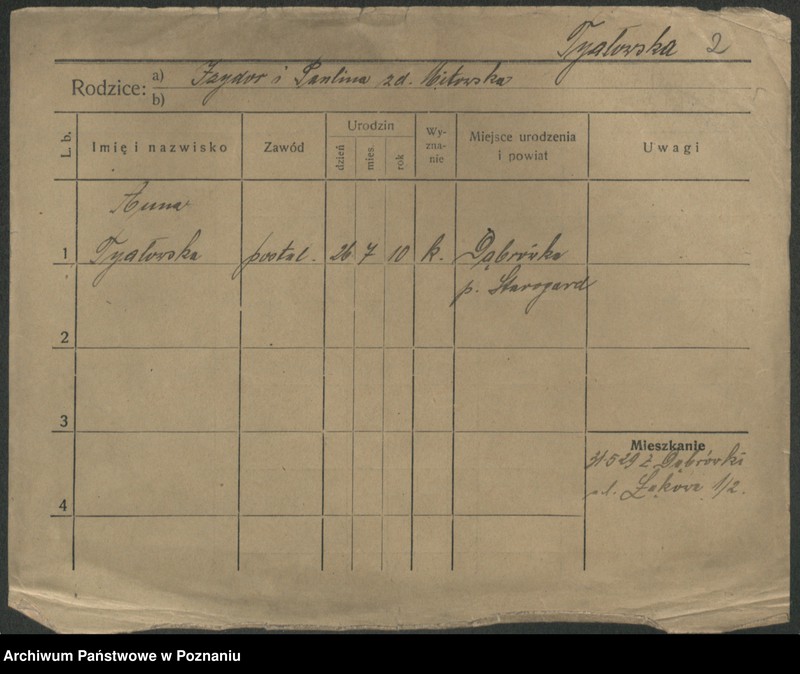 Tyałowska 2
Rodzice: a) Izydor i Paulina zd. Mełowska
b)
L. b. Imię i nazwisko Zawód Urodzin dzień mies. rok Wy-zna-nie Miejsce urodzenia i powiat Uwagi
Anna
1 Tyałowska postal. 26 7 10 k. Dąbrówka
p. Starogard
2
3
Mieszkanie
31.5.29 z Dąbrówki
4 ul. Łąkowa 1/2.
Archiwum Państwowe w Poznaniu